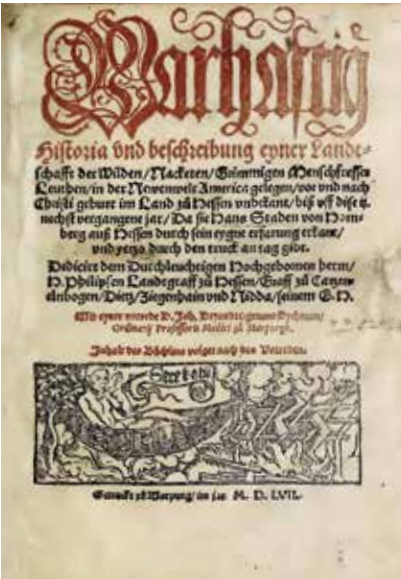 Warhaftig
Historia vnd beschreibung eyner Landt-
schafft der Wilden/Nacketen/Grimmigen Menschfresser
Leuthen/in der Newenwelt America gelegen/vor vnd nach
Christi geburt im Land zů Hessen vnbekant/biß vff dise ij.
nechst vergangene jar/Da sie Hans Staden von Hom-
berg auß Hessen durch sein eygne erfarung erkant/
vnd yetzo durch den truck an tag gibt.
Dedicirt dem Durchleuchtigen Hochgebornen herrn/
H. Philipsen Landtgraff zů Hessen/Graff zů Catzen-
elnbogen/Dietz/Ziegenhain vnd Nidda/seinem G.H.
Mit eyner vorrede D. Joh. Dryandri/genant Eychman/
Ordinarij Professoris Medici zů Marpurgk.
Inhalt des Büchlins volget nach den Vorreden.
Getruckt zů Marpurg/im jar M. D. LVII.